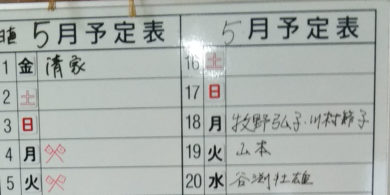 5月予定表
1 金 清家
2 土
3 日
4 月
5 火
5月予定表
16 土
17 日
18 月 牧野弘子・川村節子
19 火 山本
20 水 谷渕壮雄